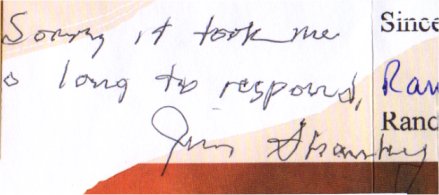 Sorry it took me
o long to respond,
Jim
Since
Ran
Rand